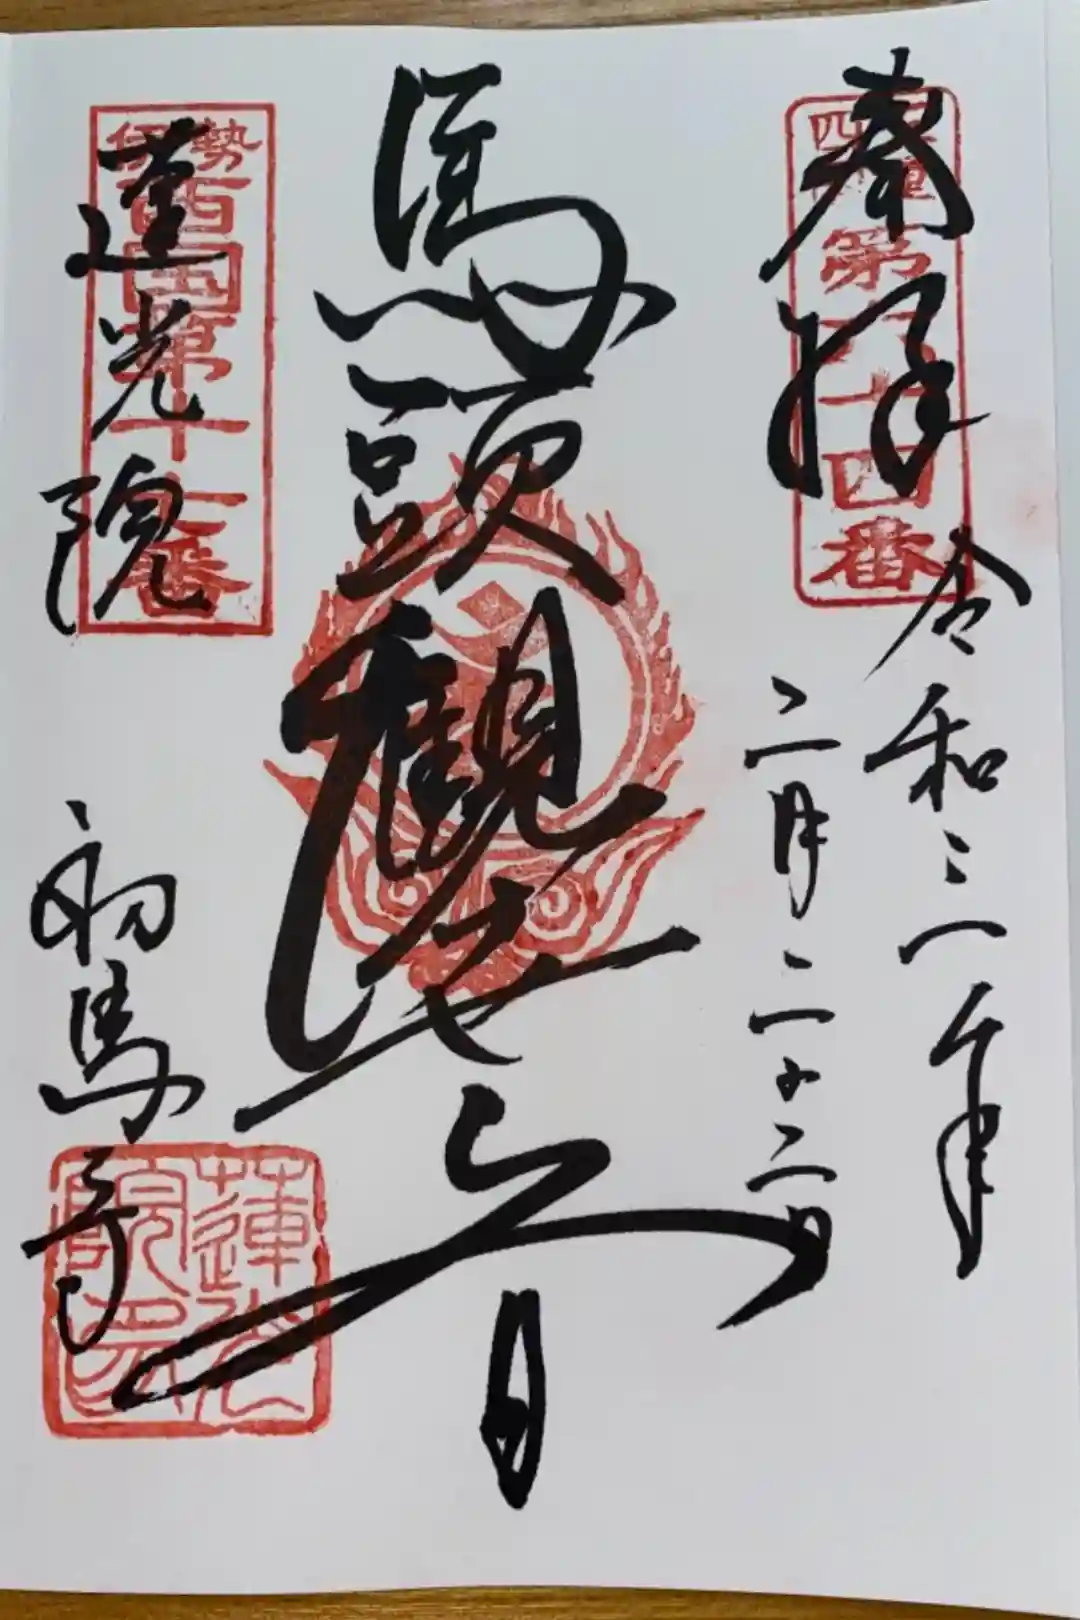 奉拝
四国
第六十四番
令和三年
二月二十二日
馬頭観世音
伊勢
西国第十七番
蓮光院
初馬寺
蓮光院印